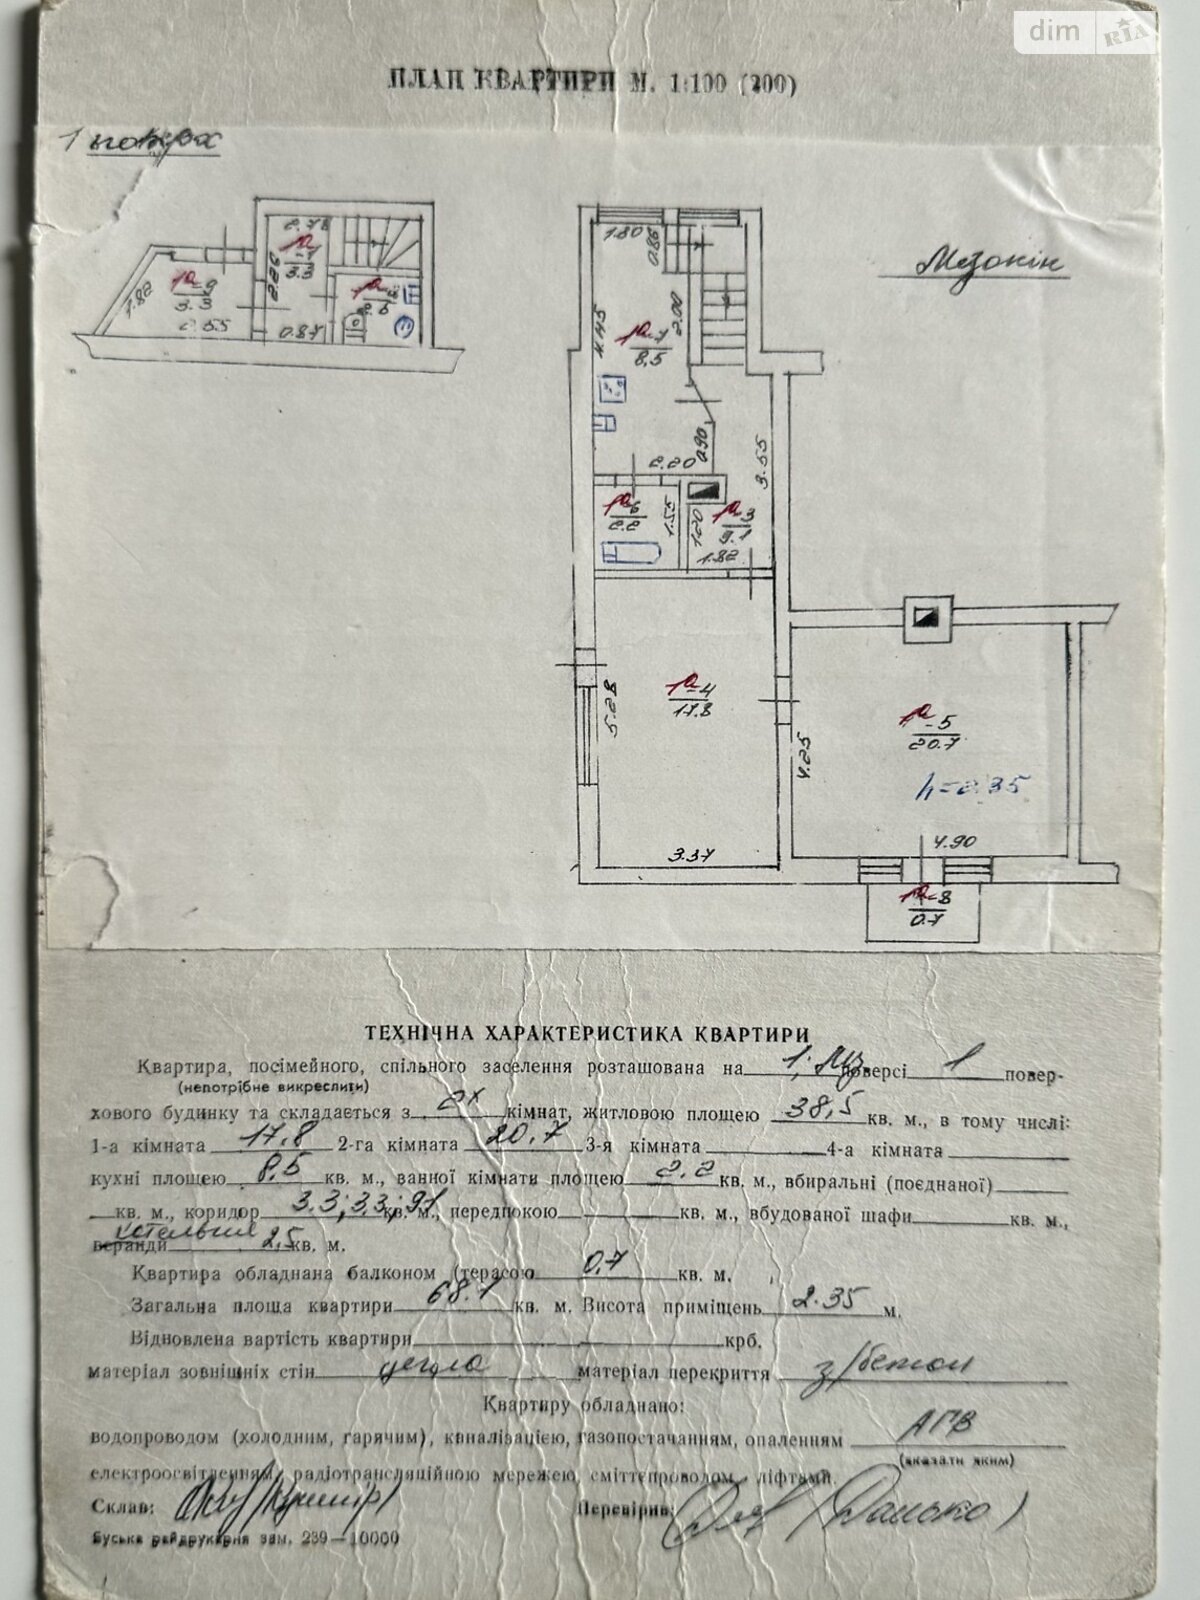 dim RIA
ПЛАН КВАРТИРИ М. 1:100 (200)
1 поверх
Мезонін
2.78
1а-1
3.3
2.26
1а-9
3.3
1.82
2.55
0.87
1а-2
2.5
1.80
0.86
4.45
2.00
1а-7
8,5
0.90
2.20
3.55
1а-6
2.2
1.55
1.20
1а-3
9.1
1.82
1а-4
17.8
5.28
3.37
1а-5
20.7
4.25
h=2.35
4.90
1а-8
0.7
ТЕХНІЧНА ХАРАКТЕРИСТИКА КВАРТИРИ
Квартира, посімейного, спільного заселення розташована на 1, Мз. поверсі 1 повер-
(непотрібне викреслити)
хового будинку та складається з 2х кімнат, житловою площею 38,5 кв. м., в тому числі:
1-а кімната 17,8 2-га кімната 20,7 3-я кімната 4-а кімната
кухні площею 8,5 кв. м., ванної кімнати площею 2,2 кв. м., вбиральні (поєднаної)
кв. м., коридор 3.3; 3.3; 9.1 кв. м., передпокою кв. м., вбудованої шафи кв. м.,
веранди котельня 2,5 кв. м.
Квартира обладнана балконом (терасою 0,7 кв. м.
Загальна площа квартири 68.1 кв. м. Висота приміщень 2.35 м.
Відновлена вартість квартири крб.
матеріал зовнішніх стін цегла матеріал перекриття з/бетон
Квартиру обладнано:
водопроводом (холодним, гарячим), каналізацією, газопостачанням, опаленням АГВ
(вказати яким)
електроосвітленням, радіотрансляційною мережею, сміттєпроводом, ліфтами.
Склав: Перевірив:
Буська райдрукарня зам. 239—10000